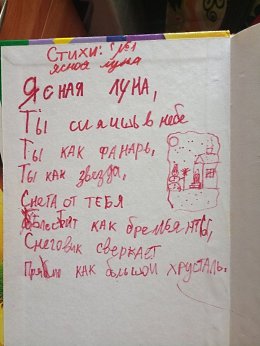 Стихи: №1
ясная луна
Ясная луна,
Ты сияишь в небе
Ты как фанарь,
Ты как звезда,
Снега от тебя
блестят как бремьянты,
Снеговик сверкает
Прямо как большой хрусталь.